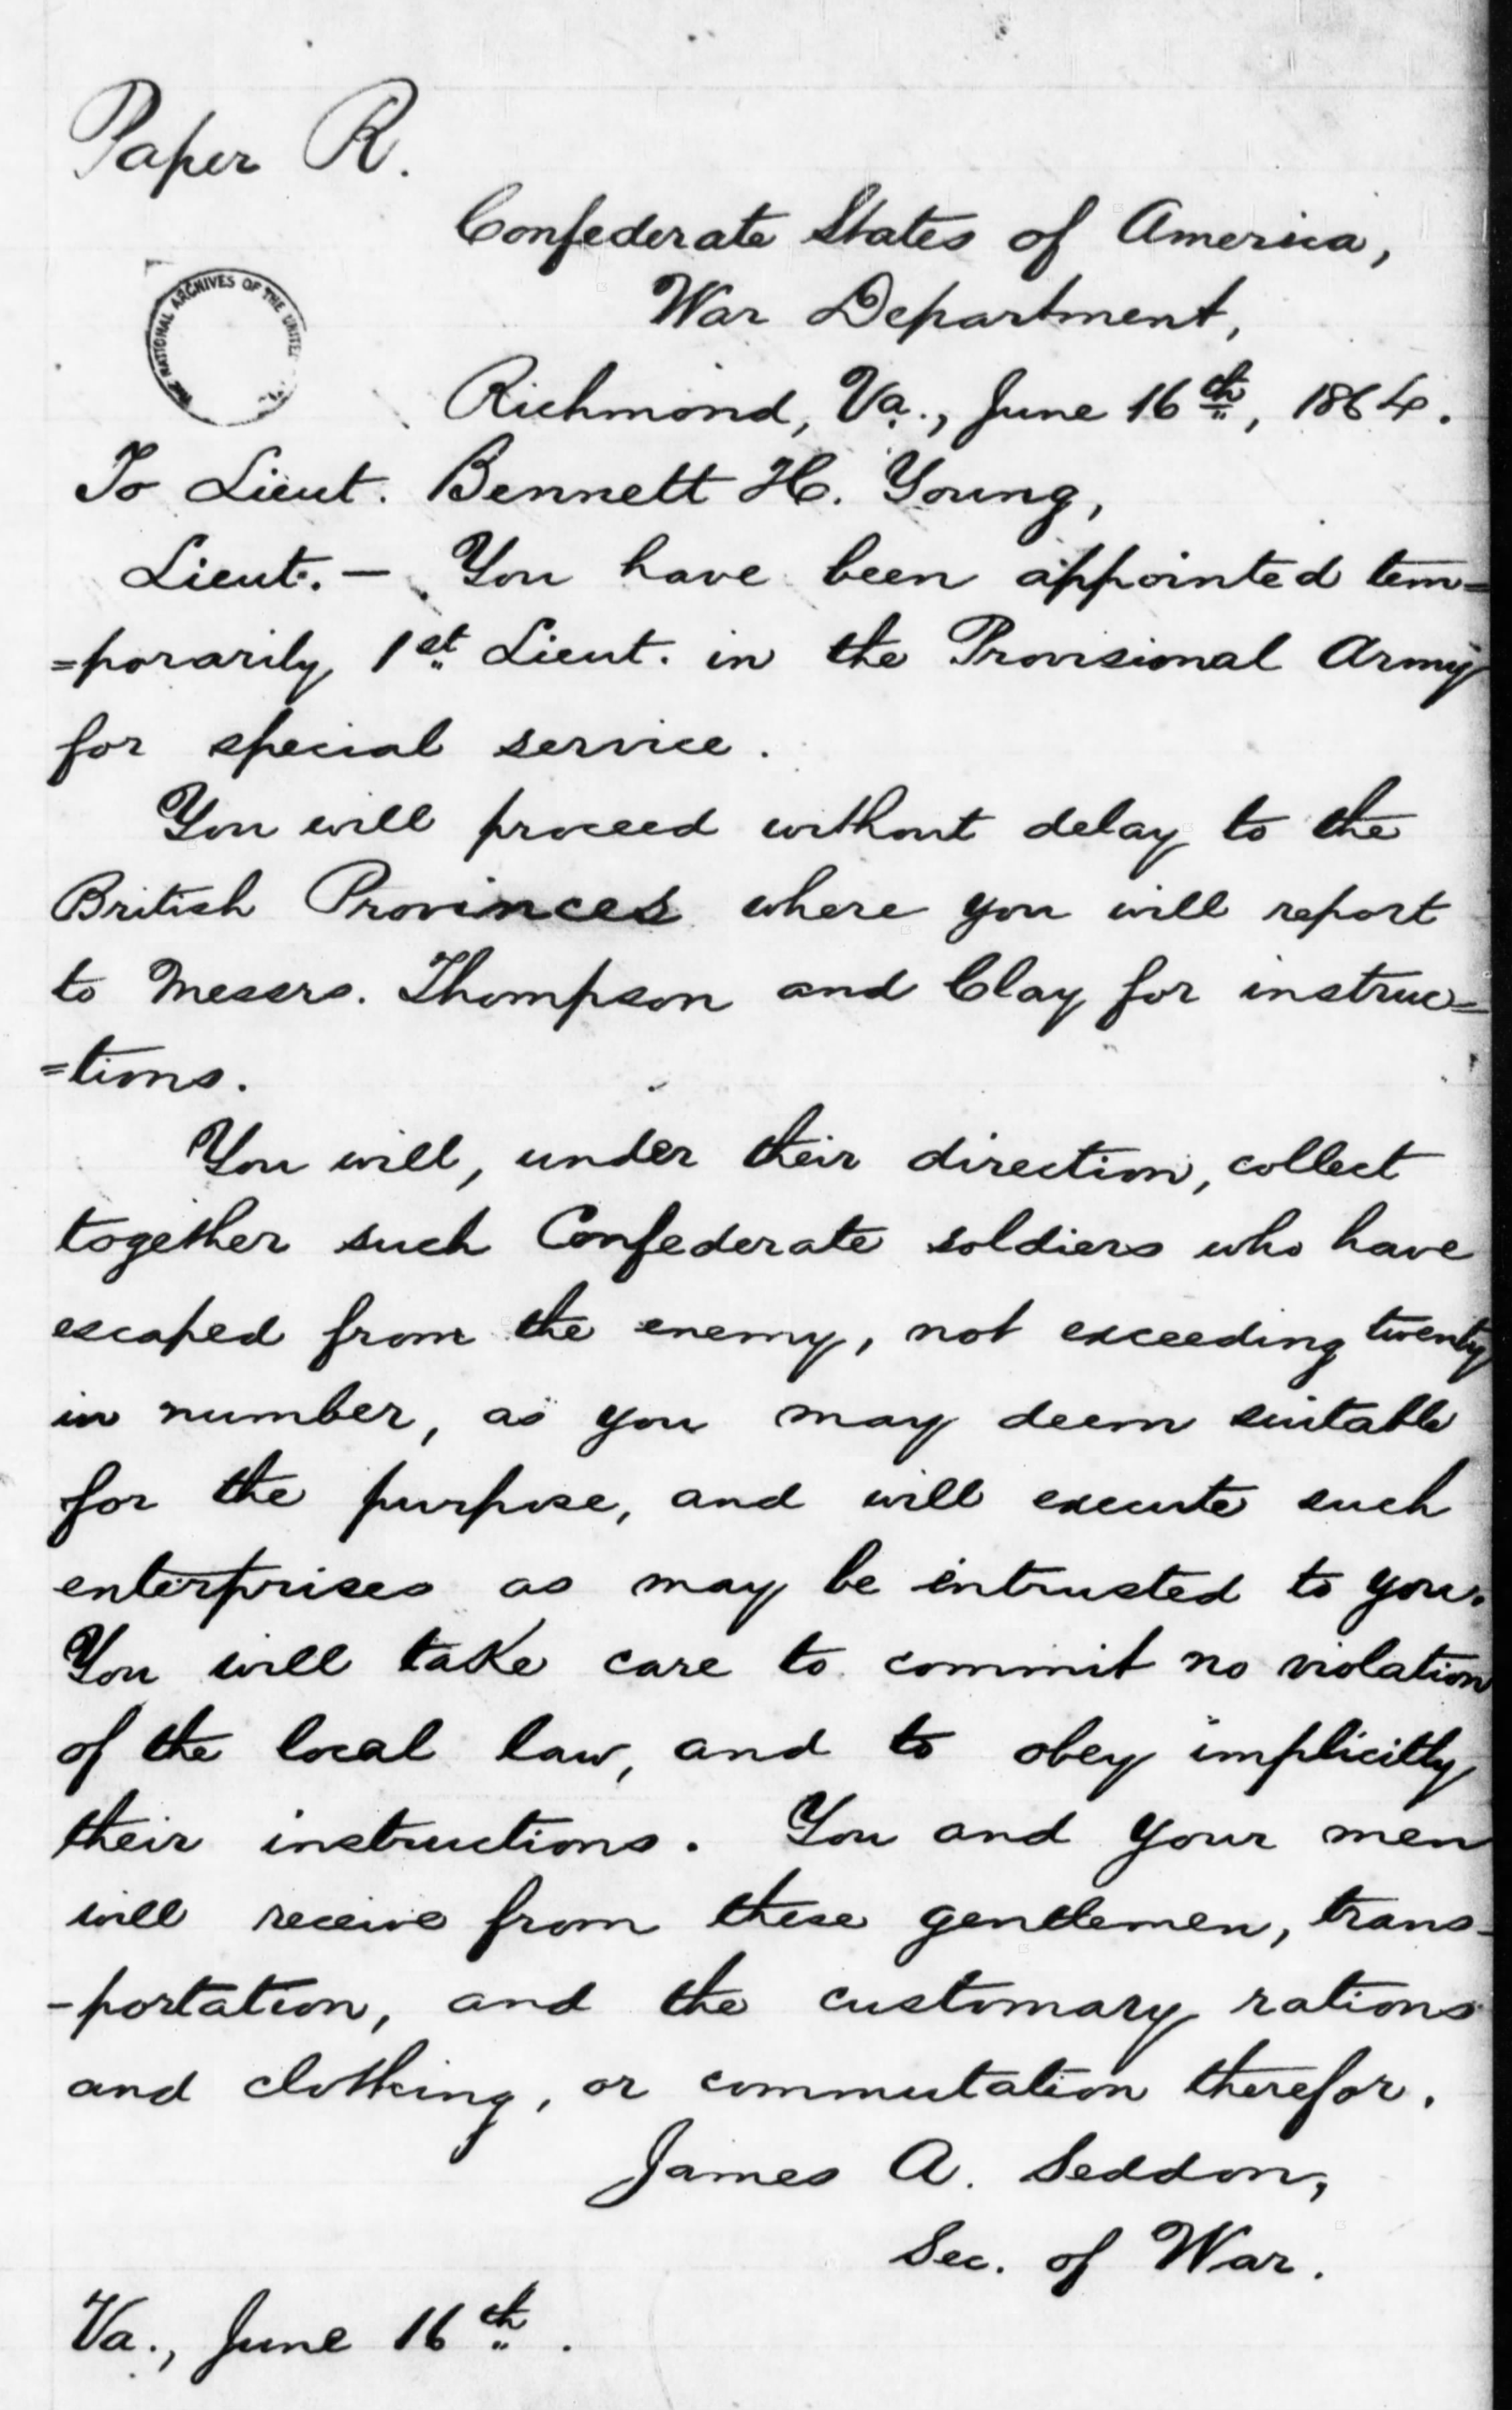 Paper R.
Confederate States of America,
War Department,
THE NATIONAL ARCHIVES OF THE UNITED
Richmond, Va., June 16th, 1864.
To Lieut. Bennett H. Young,
Lieut. — You have been appointed tem=
=porarily 1st Lieut. in the Provisional Army
for special service.
You will proceed without delay to the
British Provinces where you will report
to Messrs. Thompson and Clay for instruc=
=tions.
You will, under their direction, collect
together such Confederate soldiers who have
escaped from the enemy, not exceeding twenty
in number, as you may deem suitable
for the purpose, and will execute such
enterprises as may be intrusted to you.
You will take care to commit no violation
of the local law, and to obey implicitly
their instructions. You and your men
will receive from these gentlemen, trans-
-portation, and the customary rations
and clothing, or commutation therefor.
James A. Seddon,
Sec. of War.
Va., June 16th.